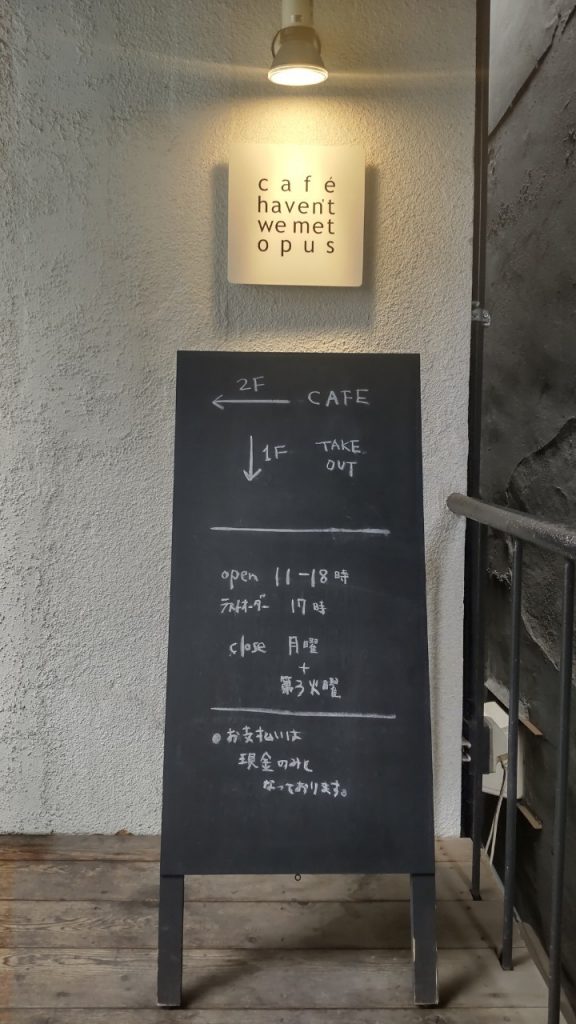 café
haven't
we met
opus
2F
← CAFE
↓ 1F TAKE
OUT
open 11-18時
ラストオーダー 17時
close 月曜
+
第3火曜
●お支払いは
現金のみと
なっております。